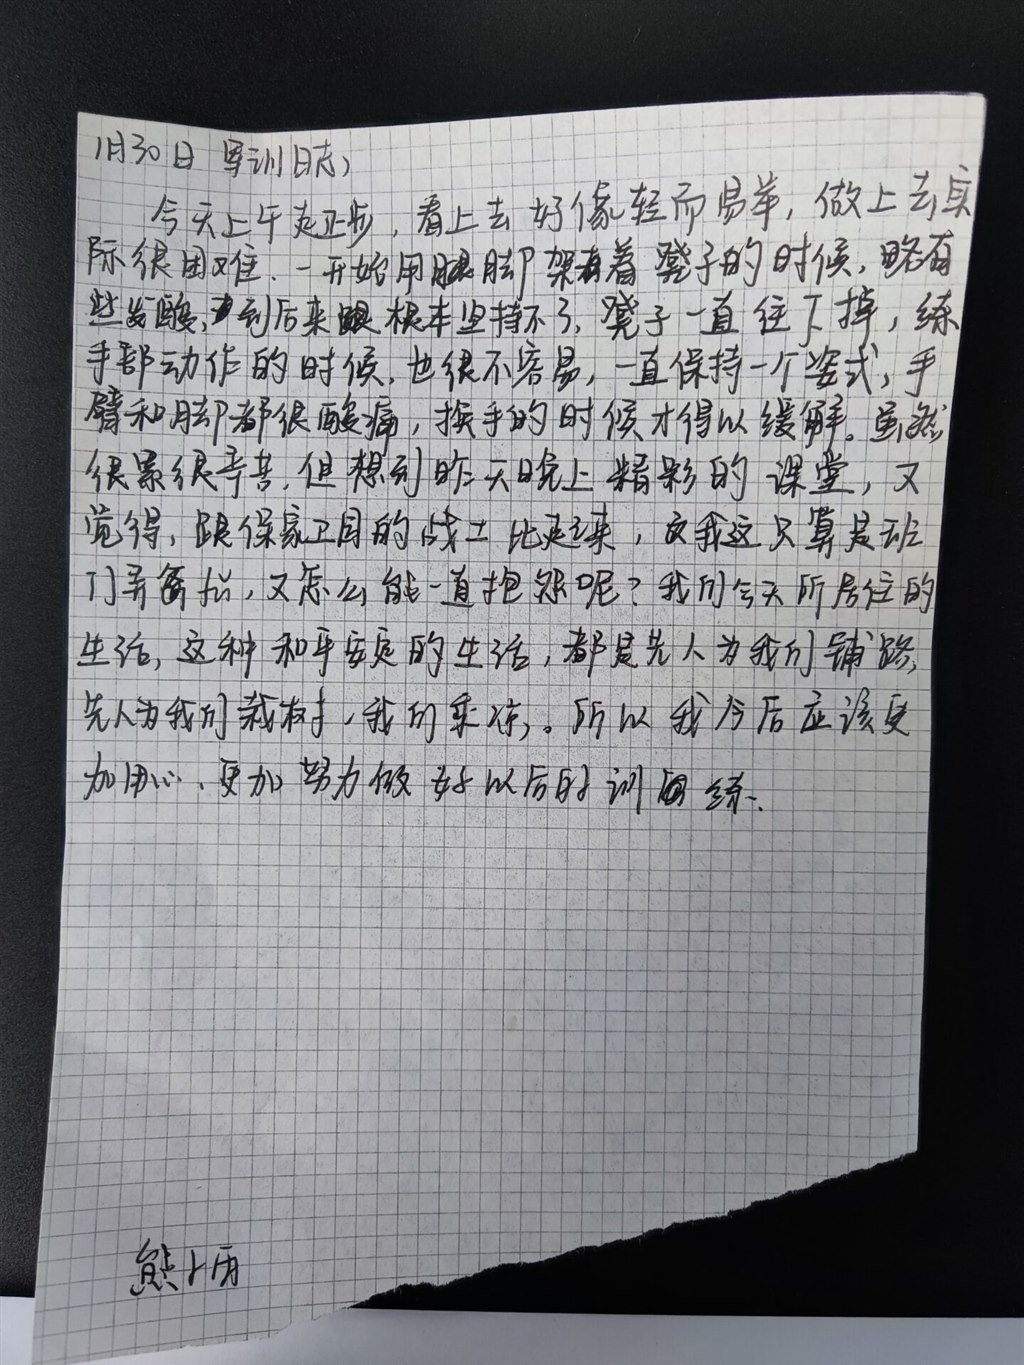 1月30日 军训日志
今天上午走正步,看上去好像轻而易举,做上去实
际很困难.一开始用脚架着凳子的时候,略有
些发酸,到后来根本坚持不了,凳子一直往下掉,练
手部动作的时候,也很不容易,一直保持一个姿式,手
臂和脚都很酸痛,换手的时候才得以缓解。虽然
很累很辛苦,但想到昨天晚上精彩的课堂,又
觉得,跟保家卫国的战士比起来,我这只算是班
门弄斧,又怎么能一直抱怨呢?我们今天所居住的
生活,这种和平安定的生活,都是先人为我们铺路,
先人为我们栽树,我们乘凉。所以我今后应该更
加用心、更加努力做好以后的训练.
熊